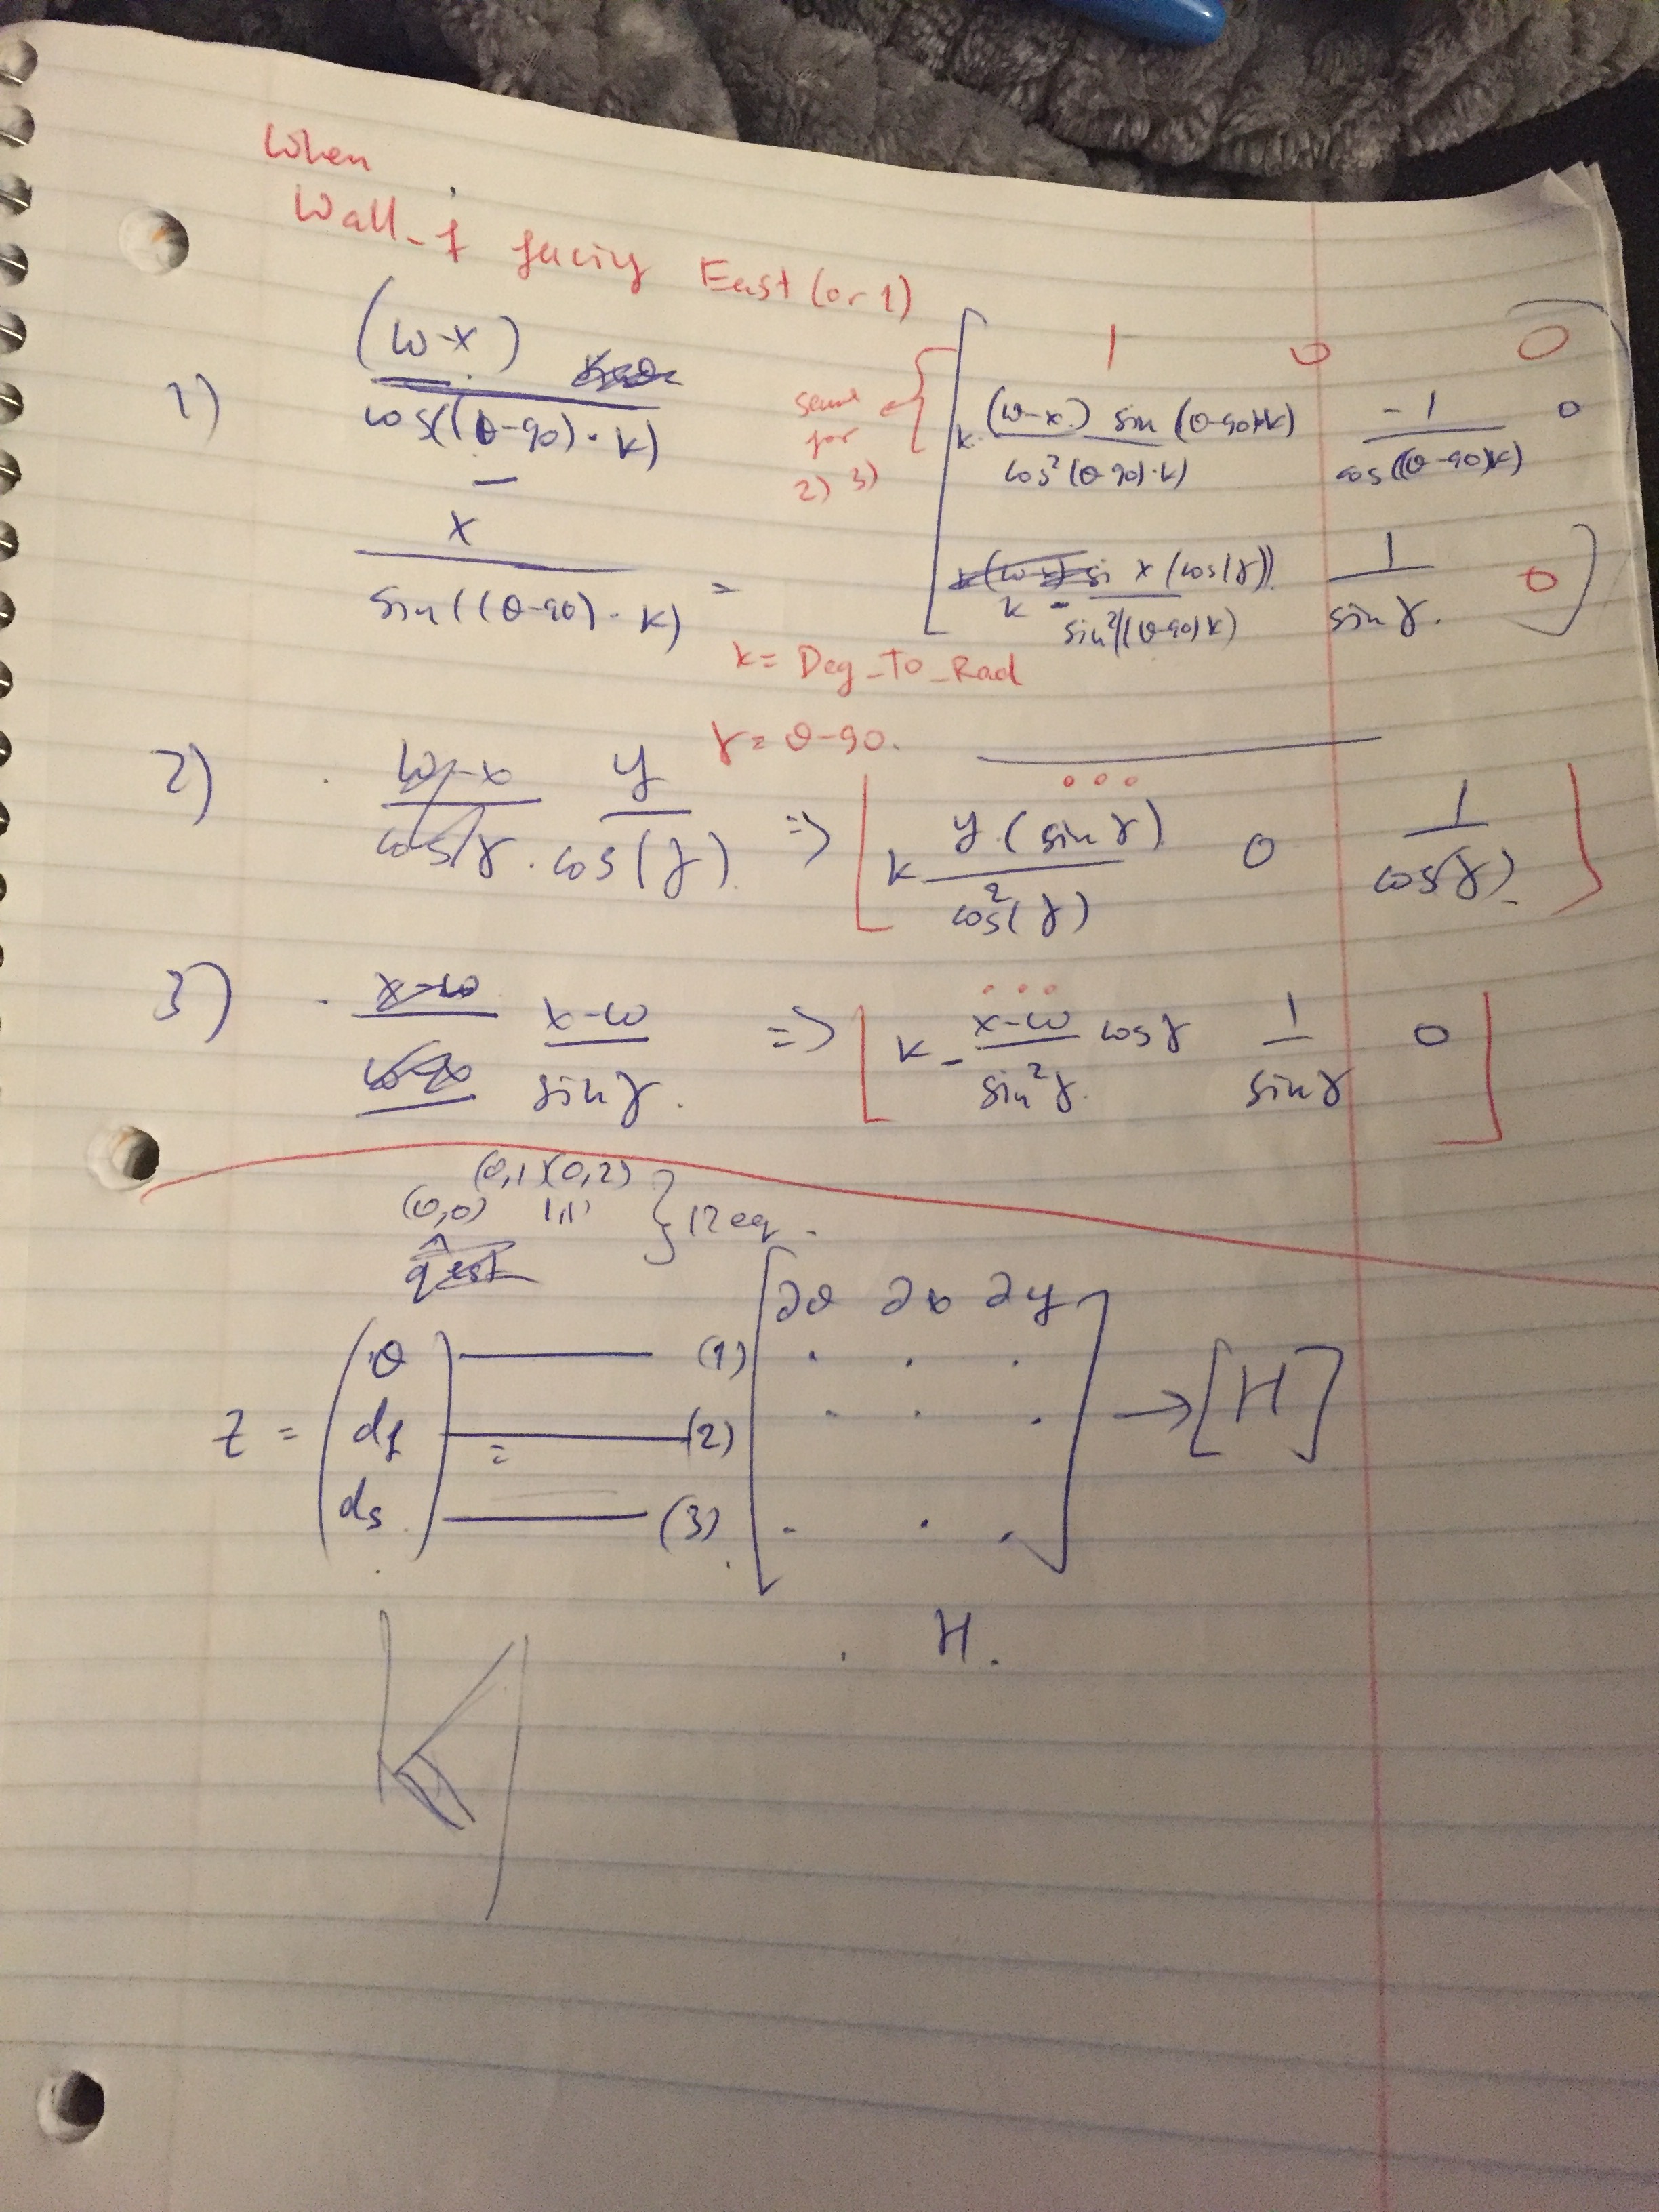 When
Wall_f facing East (or 1)
1) (w-x) / cos((θ-90)·k)
—
x / sin((θ-90)·k) =
same for 2) 3)
[ 1 0 0
k · (w-x) sin(θ-90)k) / cos²(θ-90)·k) -1 / cos((θ-90)k) 0
k - x (cos(γ)) / sin²((θ-90)k) 1 / sin γ. 0 ]
k = Deg_To_Rad
γ = θ-90.
2) y / cos(γ) => [ ...
k y (sin γ) / cos²(γ) 0 1 / cos(γ) ]
3) x-w / sin γ. => [ ...
k - x-w / sin²γ. cos γ 1 / sin γ 0 ]
(0,1)(0,2)
(0,0) 1,1 } 12 eq.
z = ( θ df ds ) =
(1)
(2)
(3)
[ ∂θ ∂x ∂y ] → [H]
H.